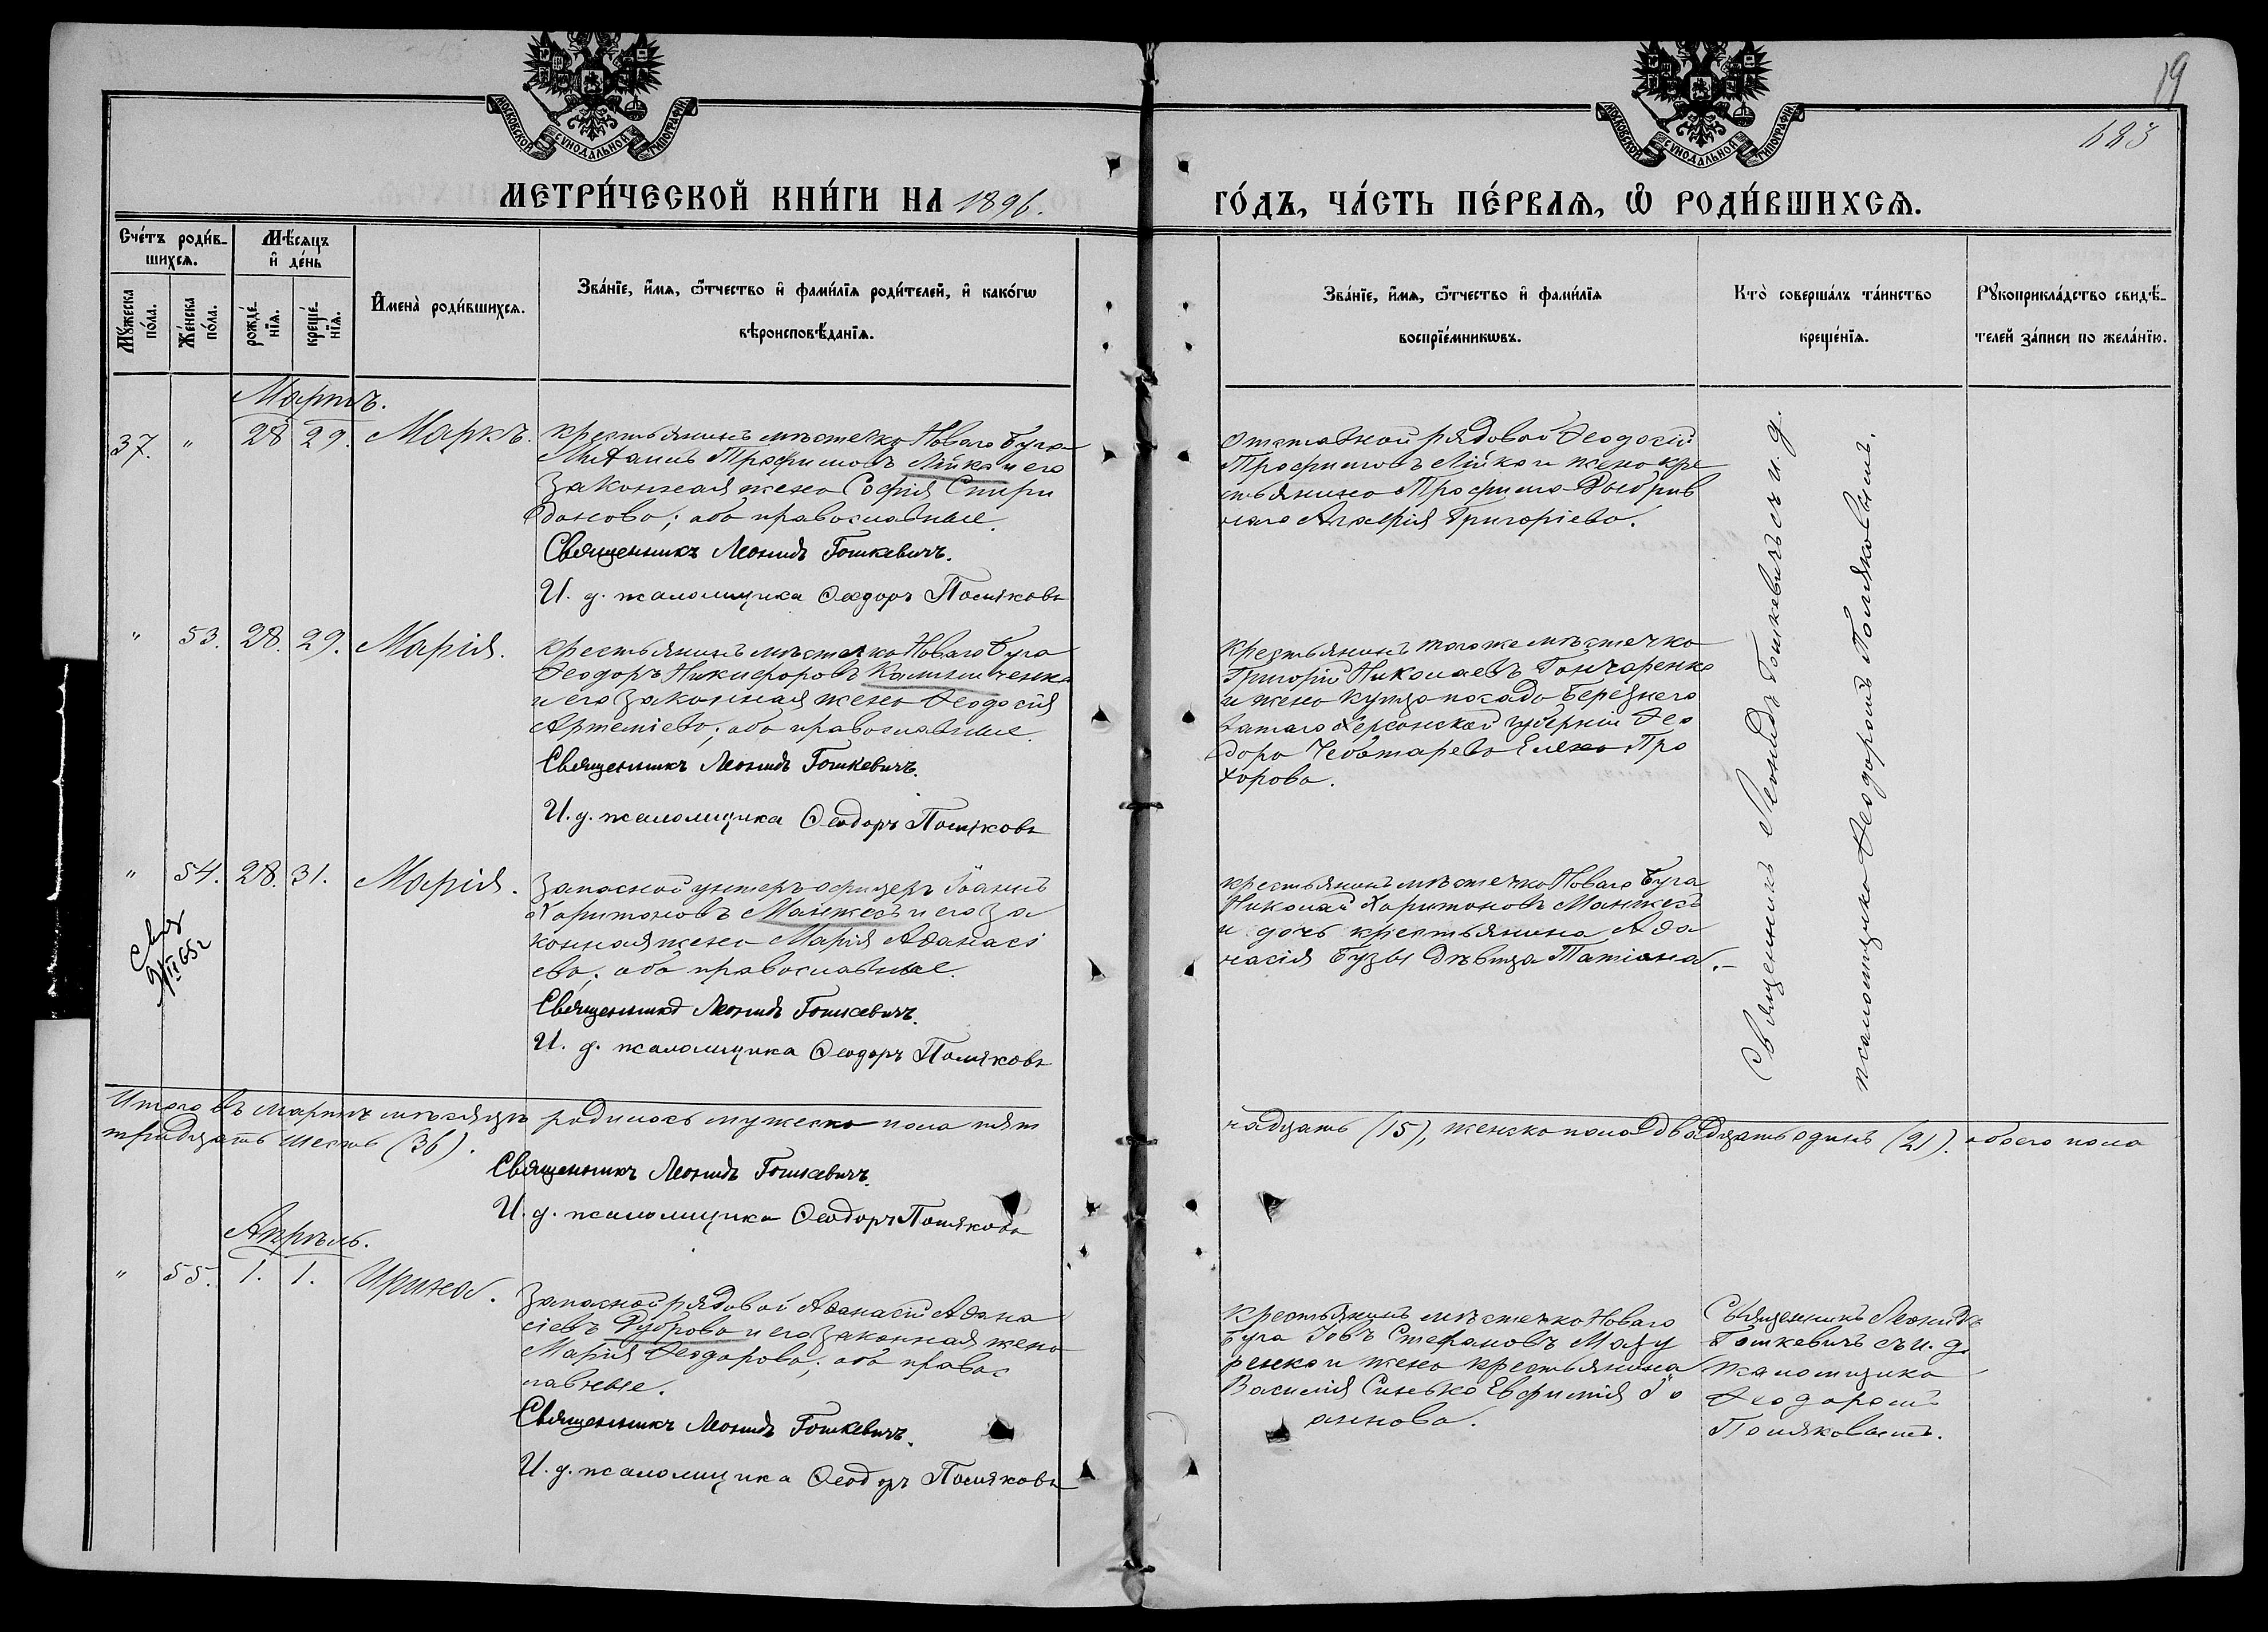 19
123
МОСКОВСКОЙ СѴНОДАЛЬНОЙ ТИПОГРАФІИ
МОСКОВСКОЙ СѴНОДАЛЬНОЙ ТИПОГРАФІИ
МЕТРИ́ЧЕСКОЙ КНИ́ГИ НА 1896.
ГО́ДЪ, ЧА́СТЬ ПЕ́РВАѦ, Ѡ҆ РОДИ́ВШИХСѦ.
Сче́тъ роди́в-
шихсѧ.
Мꙋ́жеска по́ла.
Же́нска по́ла.
Мѣ́сѧцъ
и҆ де́нь
рожде́-
нїѧ.
креще́-
нїѧ.
И҆мена̀ роди́вшихсѧ.
Зва́нїе, и҆́мѧ, ѻ҆́тчество и҆ фами́лїѧ роди́телей, и҆ како́гѡ
вѣроисповѣ́данїѧ.
Зва́нїе, и҆́мѧ, ѻ҆́тчество и҆ фами́лїѧ
воспрїе́мникѡвъ.
Кто̀ соверша́лъ та́инство
креще́нїѧ.
Рꙋкоприкла́дство свидѣ́-
телей за́писи по жела́нїю.
Мартъ.
37. " 28 29. Маркъ.
крестьянинъ мѣстечка Новаго Буга
Михаилъ Трофимовъ Лійка и его
законная жена Софія Спири
донова; оба православные.
Священникъ Леонидъ Гошкевичъ.
И. д. псаломщика Ѳеодоръ Поляковъ
Отставной рядовой Ѳеодосій
Трофимовъ Лійка и жена кре
стьянина Трофима
Агафія Григоріева.
" 53. 28. 29. Марія.
крестьянинъ мѣстечка Новаго Буга
Ѳеодоръ Никифоровъ
и его законная жена Ѳеодосія
Артеміева; оба православные.
Священникъ Леонидъ Гошкевичъ.
И. д. псаломщика Ѳеодоръ Поляковъ
крестьянинъ того же мѣстечка
Григорій Николаевъ Гончаренко
и жена купца посада Березнего
ватаго Херсонской губерніи Ѳео
дора Чеботарева Елена Про
хорова.
" 54. 28. 31. Марія.
Запасной унтеръ офицеръ Іоаннъ
Харитоновъ Манжесъ и его за
конная жена Марія Аѳанасі
ева; оба православные.
Священникъ Леонидъ Гошкевичъ.
И. д. псаломщика Ѳеодоръ Поляковъ
крестьянинъ мѣстечка Новаго Буга
Николай Харитоновъ Манжесъ
и дочь крестьянина Аѳа
насія Бузы дѣвица Татіана.
Священникъ Леонидъ Гошкевичъ съ и. д.
псаломщика Ѳеодоромъ Поляковымъ.
Итого въ мартѣ мѣсяцѣ родилось мужеска пола пят
надцать (15), женска пола двадцать одинъ (21). обоего пола
тридцать шесть (36).
Священникъ Леонидъ Гошкевичъ.
И. д. псаломщика Ѳеодоръ Поляковъ
Апрѣль.
" 55. 1. 1. Ирина.
Запасной рядовой Аѳанасій Аѳана
сіевъ Дуброва и его законная жена
Марія Ѳеодорова; оба правос
лавные.
Священникъ Леонидъ Гошкевичъ.
И. д. псаломщика Ѳеодоръ Поляковъ
крестьянинъ мѣстечка Новаго
Буга Іовъ Стефановъ Мазу
ренко и жена крестьянина
Василія Синька Евфимія Іо
аннова.
Священникъ Леонидъ
Гошкевичъ съ и. д.
псаломщика
Ѳеодоромъ
Поляковымъ.